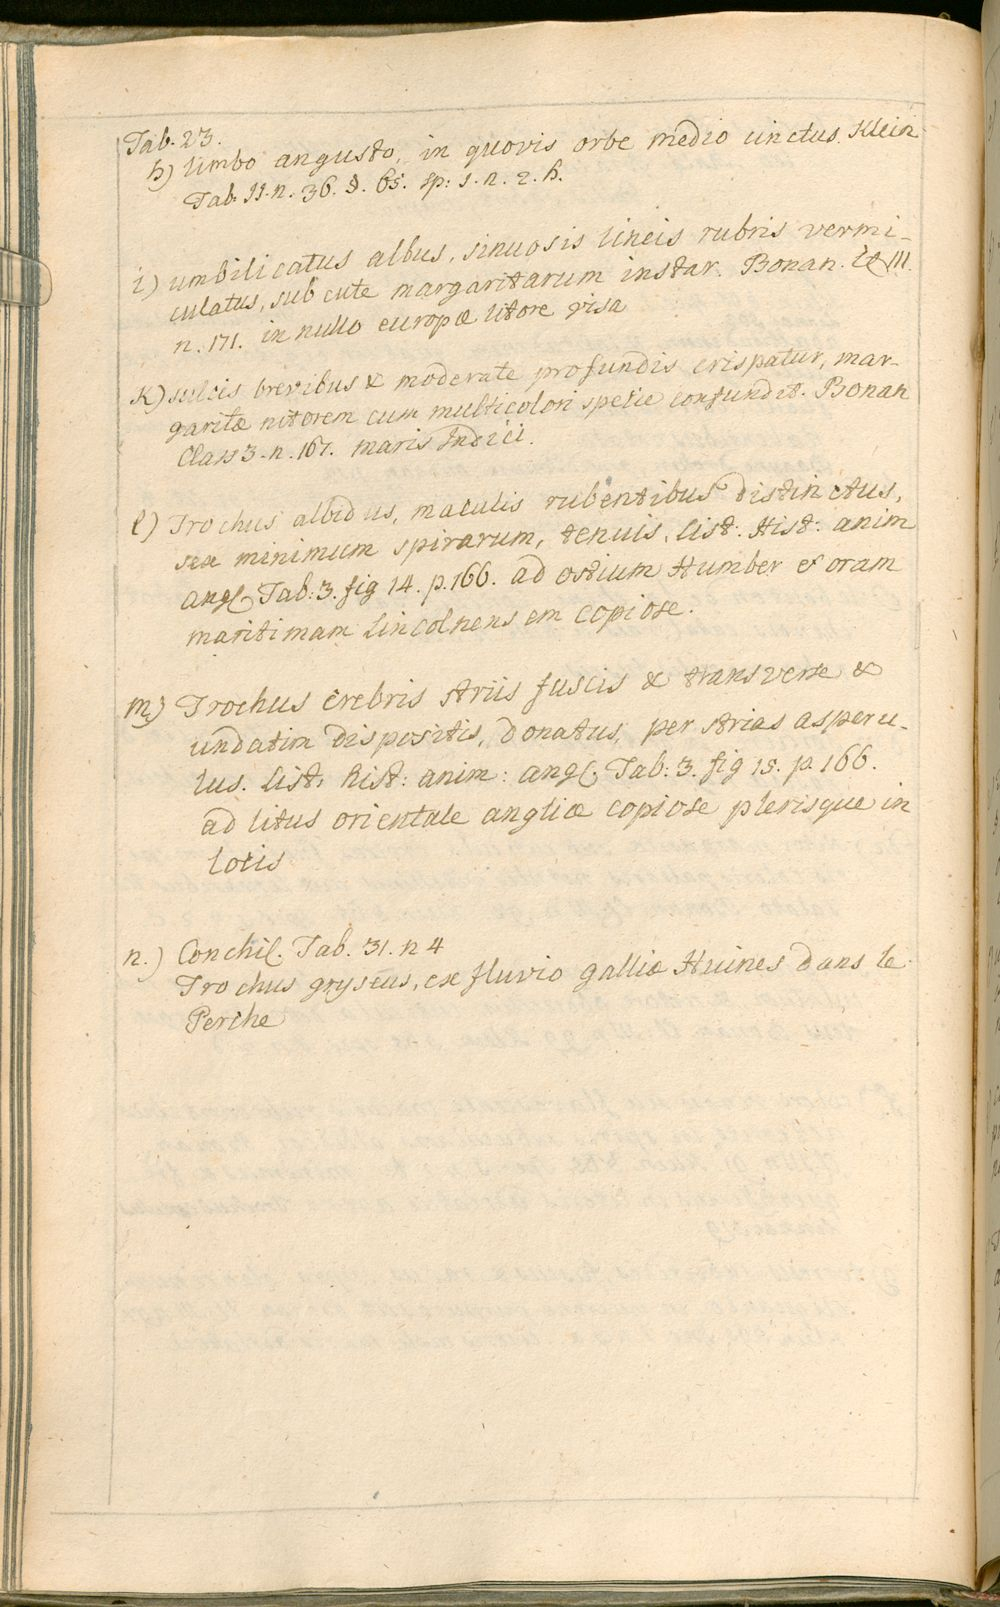 Tab. 23.
h) limbo angusto, in quovis orbe medio cinctus. Klein
Tab. II. n. 36. §. 65. sp: 1. n. 2. h.
i) umbilicatus albus, sinuosis lineis rubris vermi-
culatus, sub cute margaritarum instar. Bonan. III.
n. 171. in nullo europæ litore visa
K) sulcis brevibus & moderate profundis crispatur, mar-
garitæ nitorem cum multicolori specie confundit. Bonan
Class 3. n. 167. maris Indici.
l) Trochus albidus, maculis rubentibus distinctus,
sex minimum spirarum, tenuis, List: Hist: anim
angl. Tab: 3. fig 14. p. 166. ad ostium Humber & oram
maritimam Lincolnensem copiose.
m) Trochus crebris striis fuscis & transverse &
undatim dispositis, donatus, per strias asperu-
lus. List, hist: anim: angl. Tab: 3. fig 15. p. 166.
ad litus orientale angliæ copiose plerisque in
locis
n.) Conchil. Tab. 31. n 4
Trochus gryseus, ex fluvio galliæ Huines dans le
Perche